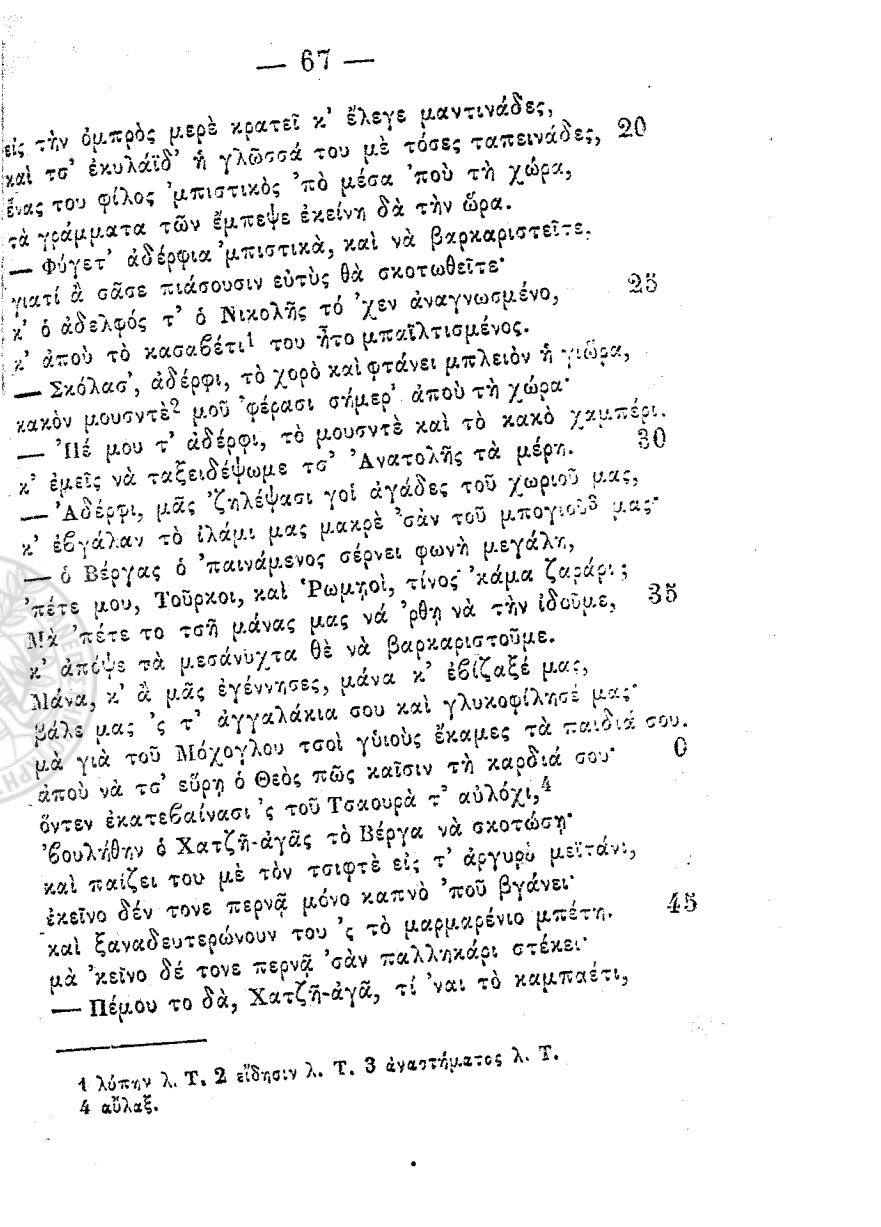 — 67 —
εἰς τὴν ὀμπρὸς μερὲ κρατεῖ κ' ἔλεγε μαντινάδες,
καὶ τσ' ἐκυλάϊδ' ἡ γλῶσσά του μὲ τόσες ταπεινάδες, 20
ἕνας του φίλος 'μπιστικὸς 'πὸ μέσα 'ποὺ τὴ χώρα,
τὰ γράμματα τῶν ἔμπεψε ἐκείνη δὰ τὴν ὥρα.
— Φύγετ' ἀδέρφια 'μπιστικὰ, καὶ νὰ βαρκαριστεῖτε,
γιατί ἂ σᾶσε πιάσουσιν εὐτὺς θὰ σκοτωθεῖτε·
κ' ὁ ἀδελφός τ' ὁ Νικολῆς τό 'χεν ἀναγνωσμένο, 25
κ' ἀποὺ τὸ κασαβέτι1 του ἦτο μπαϊλτισμένος.
— Σκόλασ', ἀδέρφι, τὸ χορὸ καὶ φτάνει μπλειὸν ἡ γιῶρα,
κακὸν μουσντὲ2 μοῦ 'φέρασι σήμερ' ἀποὺ τὴ χώρα·
— 'Πέ μου τ' ἀδέρφι, τὸ μουσντὲ καὶ τὸ κακὸ χαμπέρι.
κ' ἐμεῖς νὰ ταξειδέψωμε τσ' 'Ανατολῆς τὰ μέρη. 30
— 'Αδέρφι, μᾶς 'ζηλέψασι γοἱ ἀγάδες τοῦ χωριοῦ μας,
κ' ἐβγάλαν τὸ ἰλάμι μας μακρὲ 'σὰν τοῦ μπογιοῦ3 μας·
— ὁ Βέργας ὁ 'παινάμενος σέρνει φωνὴ μεγάλη,
'πέτε μου, Τοῦρκοι, καὶ Ῥωμῃοὶ, τίνος 'κάμα ζαράρι;
Μὰ 'πέτε το τσῆ μάνας μας νά 'ρθῃ νὰ τὴν ἰδοῦμε, 35
κ' ἀπόψε τὰ μεσάνυχτα θὲ νὰ βαρκαριστοῦμε.
Μάνα, κ' ἂ μᾶς ἐγέννησες, μάνα κ' ἐβίζαξέ μας,
βάλε μας 'ς τ' ἀγγαλάκια σου καὶ γλυκοφίλησέ μας·
μὰ γιὰ τοῦ Μόχογλου τσοὶ γὑιοὺς ἔκαμες τὰ παιδιά σου.
ἀποὺ νὰ τσ' εὕρῃ ὁ Θεὸς πῶς καῖσιν τὴ καρδιά σου· 0
ὄντεν ἐκατεβαίνασι 'ς τοῦ Τσαουρᾶ τ' αὐλόχι,4
'βουλήθην ὁ Χατζῆ-ἀγᾶς τὸ Βέργα νὰ σκοτώσῃ·
καὶ παίζει του μὲ τὸν τσιφτὲ εἰς τ' ἀργυρὸ μεϊτάνι,
ἐκεῖνο δέν τονε περνᾷ μόνο καπνὸ 'ποῦ βγάνει·
καὶ ξαναδευτερώνουν του 'ς τὸ μαρμαρένιο μπέτη. 45
μὰ 'κεῖνο δέ τονε περνᾷ 'σὰν παλληκάρι στέκει·
— Πέμου το δὰ, Χατζῆ-ἀγᾶ, τί 'ναι τὸ καμπαέτι,
1 λύπην λ. Τ. 2 εἴδησιν λ. Τ. 3 ἀναστήματος λ. Τ.
4 αὖλαξ.